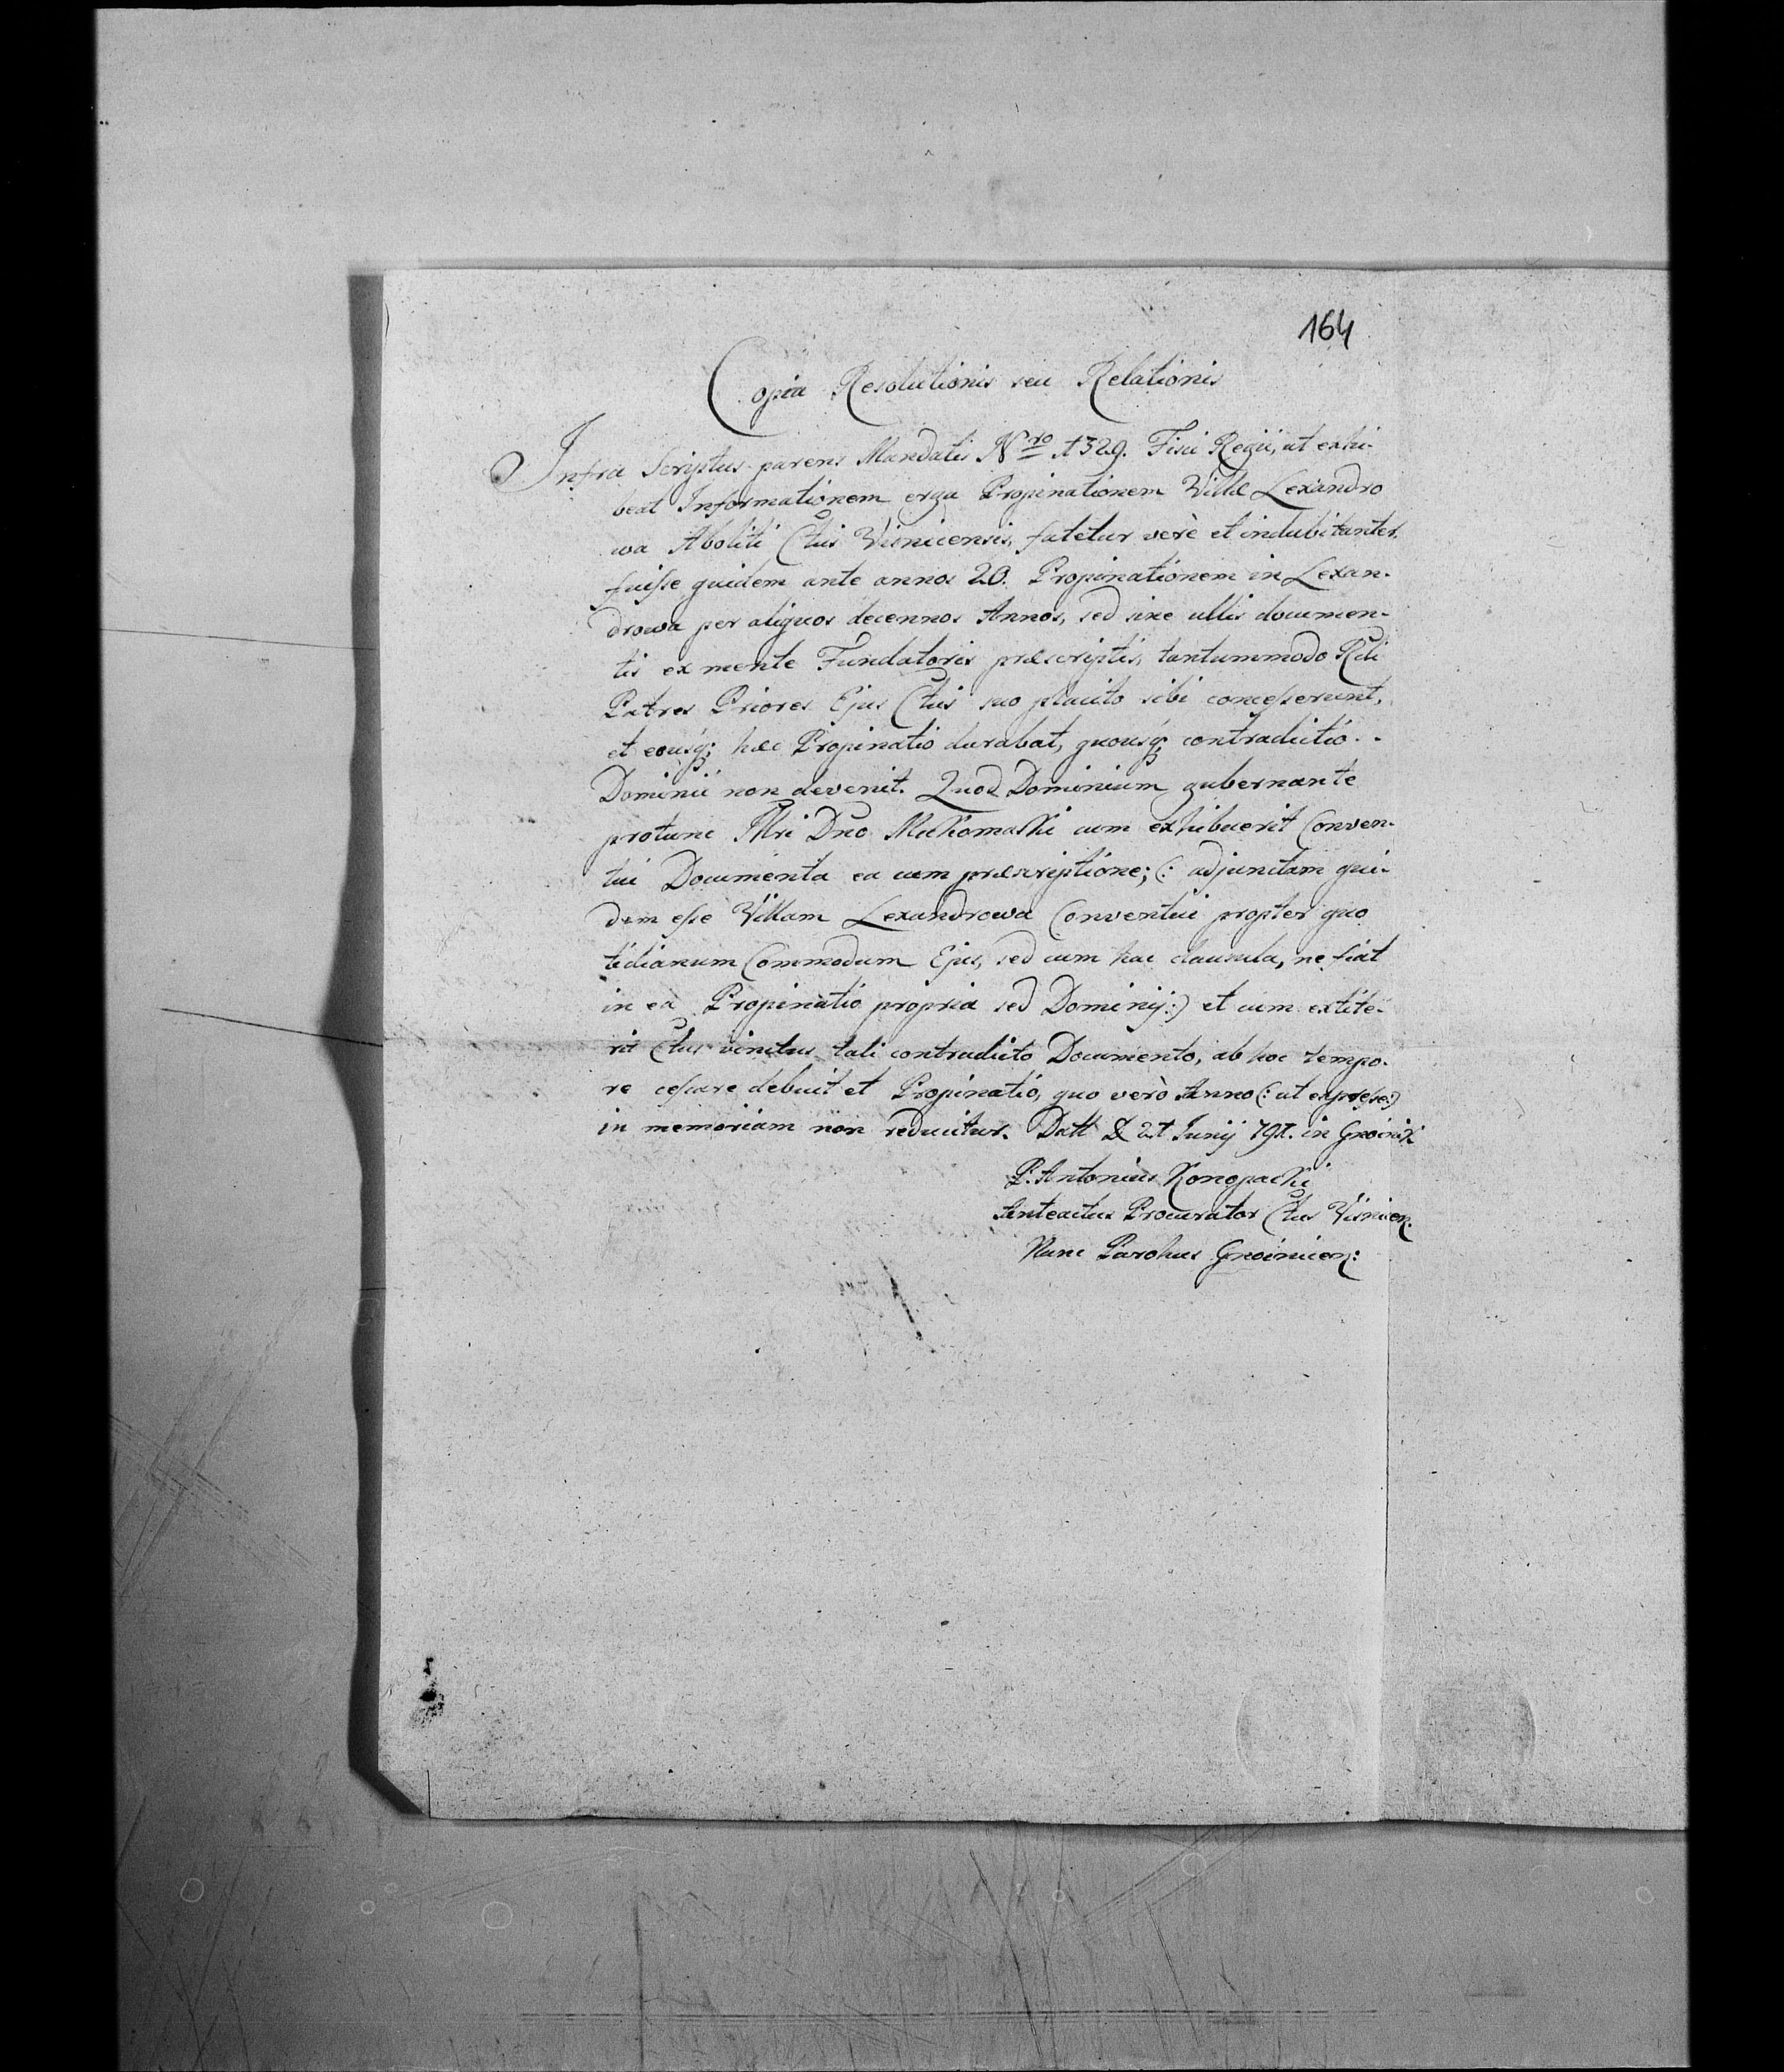 164
Copia Resolutionis seu Relationis
Infra Scriptus parens Mandatis Nro 1329. Fisci Regii, ut exhi-
beat Informationem erga Propinationem Villæ Lexandro
wa Aboliti Ctus Visnicensis, fatetur verè et indubitanter,
fuisse quidem ante annos 20. Propinationem in Lexan-
drowa per aliquos decennos Annos, sed sine ullis documen-
tis ex mente Fundatoris præscriptis, tantummodo Rdi
Patres Priores Ejus Ctus suo placito sibi concesserunt,
et eousq; hæc Propinatio durabat, quousq; contradictio
Dominii non devenit. Quod Dominium gubernante
protunc Illri Dno Makomaski cum exhibuerit Conven-
tui Documenta ea cum præscriptione; (: adjunctam qui-
dem esse Villam Lexandrowa Conventui propter quo
tidianum Commodum Ejus, sed cum hac clausula, ne fiat
in ea Propinatio propria sed Dominij :) et cum extite-
rit Ctus vinctus tali contradicto Documento, ab hoc tempo-
re cessare debuit et Propinatio, quo verò Anno (: ut expresse :)
in memoriam non reducitur. Datt D 21 Junij 791. in Gnoinik
P. Antonius Konopacki
Anteactus Procurator Ctus Visnicen.
Nunc Parohus Gnoinicen: